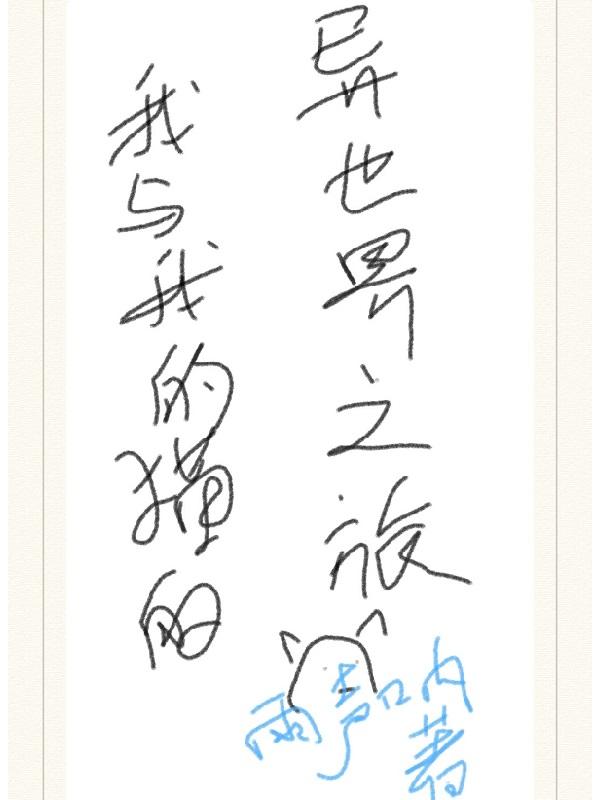 我与我的猫的
异世界之旅
雨声呐
著